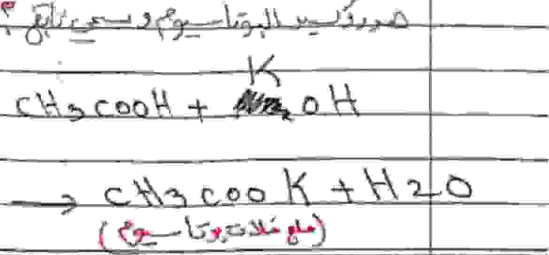 هيدروكسيد البوتاسيوم و سمي ناتج ؟
CH3COOH + KOH
→ CH3COOK + H2O
(ملح خلات بوتاسيوم)